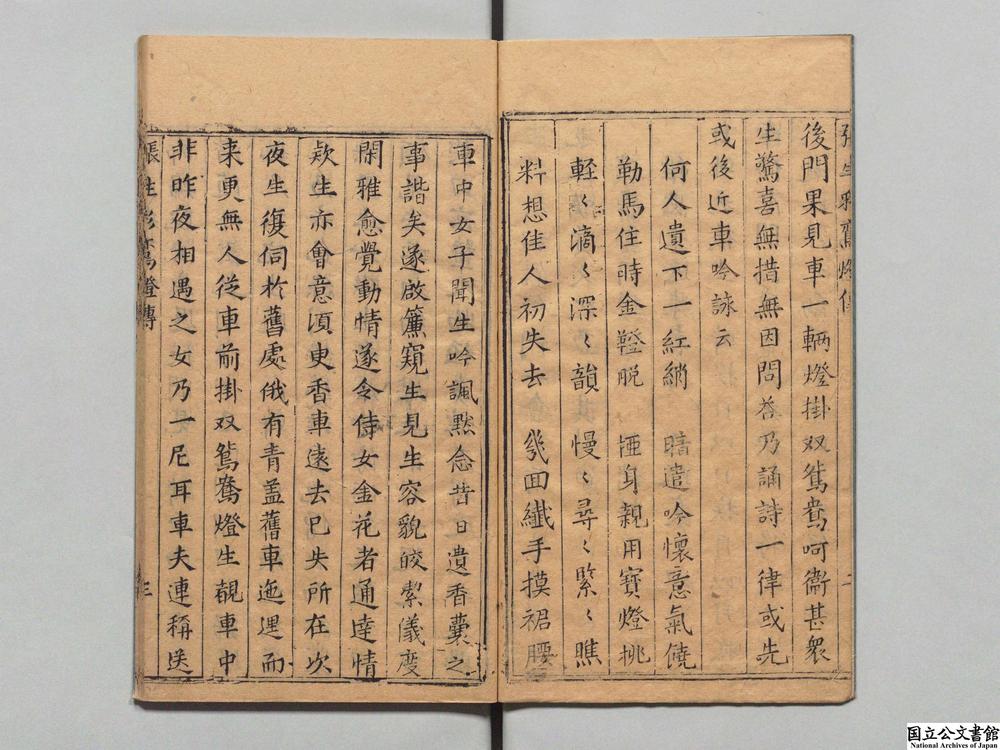 後門果見車一輌燈掛双鴛鴦呵衞甚衆
生驚喜無措無因問答乃誦詩一律或先
或後近車吟詠云
何人遺下一紅綃　暗遣吟懷意氣饒
勒馬住時金鞚脱　㧢身親用寶燈挑
軽〻滴〻深〻韻　慢〻尋〻緊〻瞧
料想佳人初失去　幾囬纎手摸裙腰
二
車中女子聞生吟諷黙念昔日遺香囊之
事諧矣遂啟簾窺生見生容貌皎絜儀度
閑雅愈覺動情遂令侍女金花者通達情
欵生亦會意須臾香車遠去已失所在次
夜生復伺於舊處俄有青盖舊車迤逞而
来更無人從車前掛双鴛鴦燈生覩車中
非昨夜相遇之女乃一尼耳車夫連稱送
張生彩鸞燈傳
三
国立公文書館
National Archives of Japan